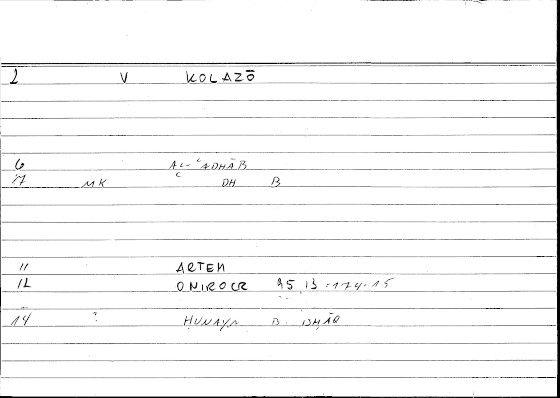 2 V KOLAZŌ
6 AL-ʿADHĀB
17 MK ʿ DH B
11 ARTEM
12 ONIROCR 25, 13 : 174.15
14 HUNAYN B. ISHĀQ